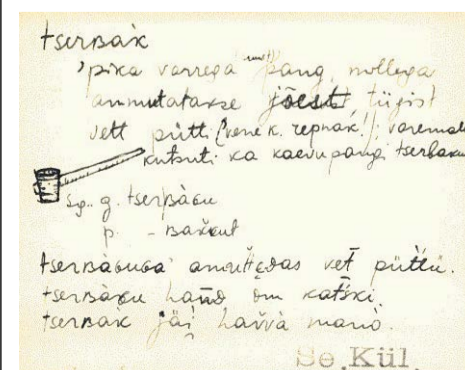 tserʙàk
'pika varrega (umt) pang, millega
ammutatakse jõest, tiigist
vett pütti (vene k. черпак!); varemalt
kutsuti ka kaevupangi tserbaku
sg. g. tserʙàɢu
p. -ʙak̆kut
tserʙàɢuɢa' amuttedas vet̆ püttü.
tserʙàɢu hańd õm katški.
tserʙàk jäi havva manò.
Se, Kül.